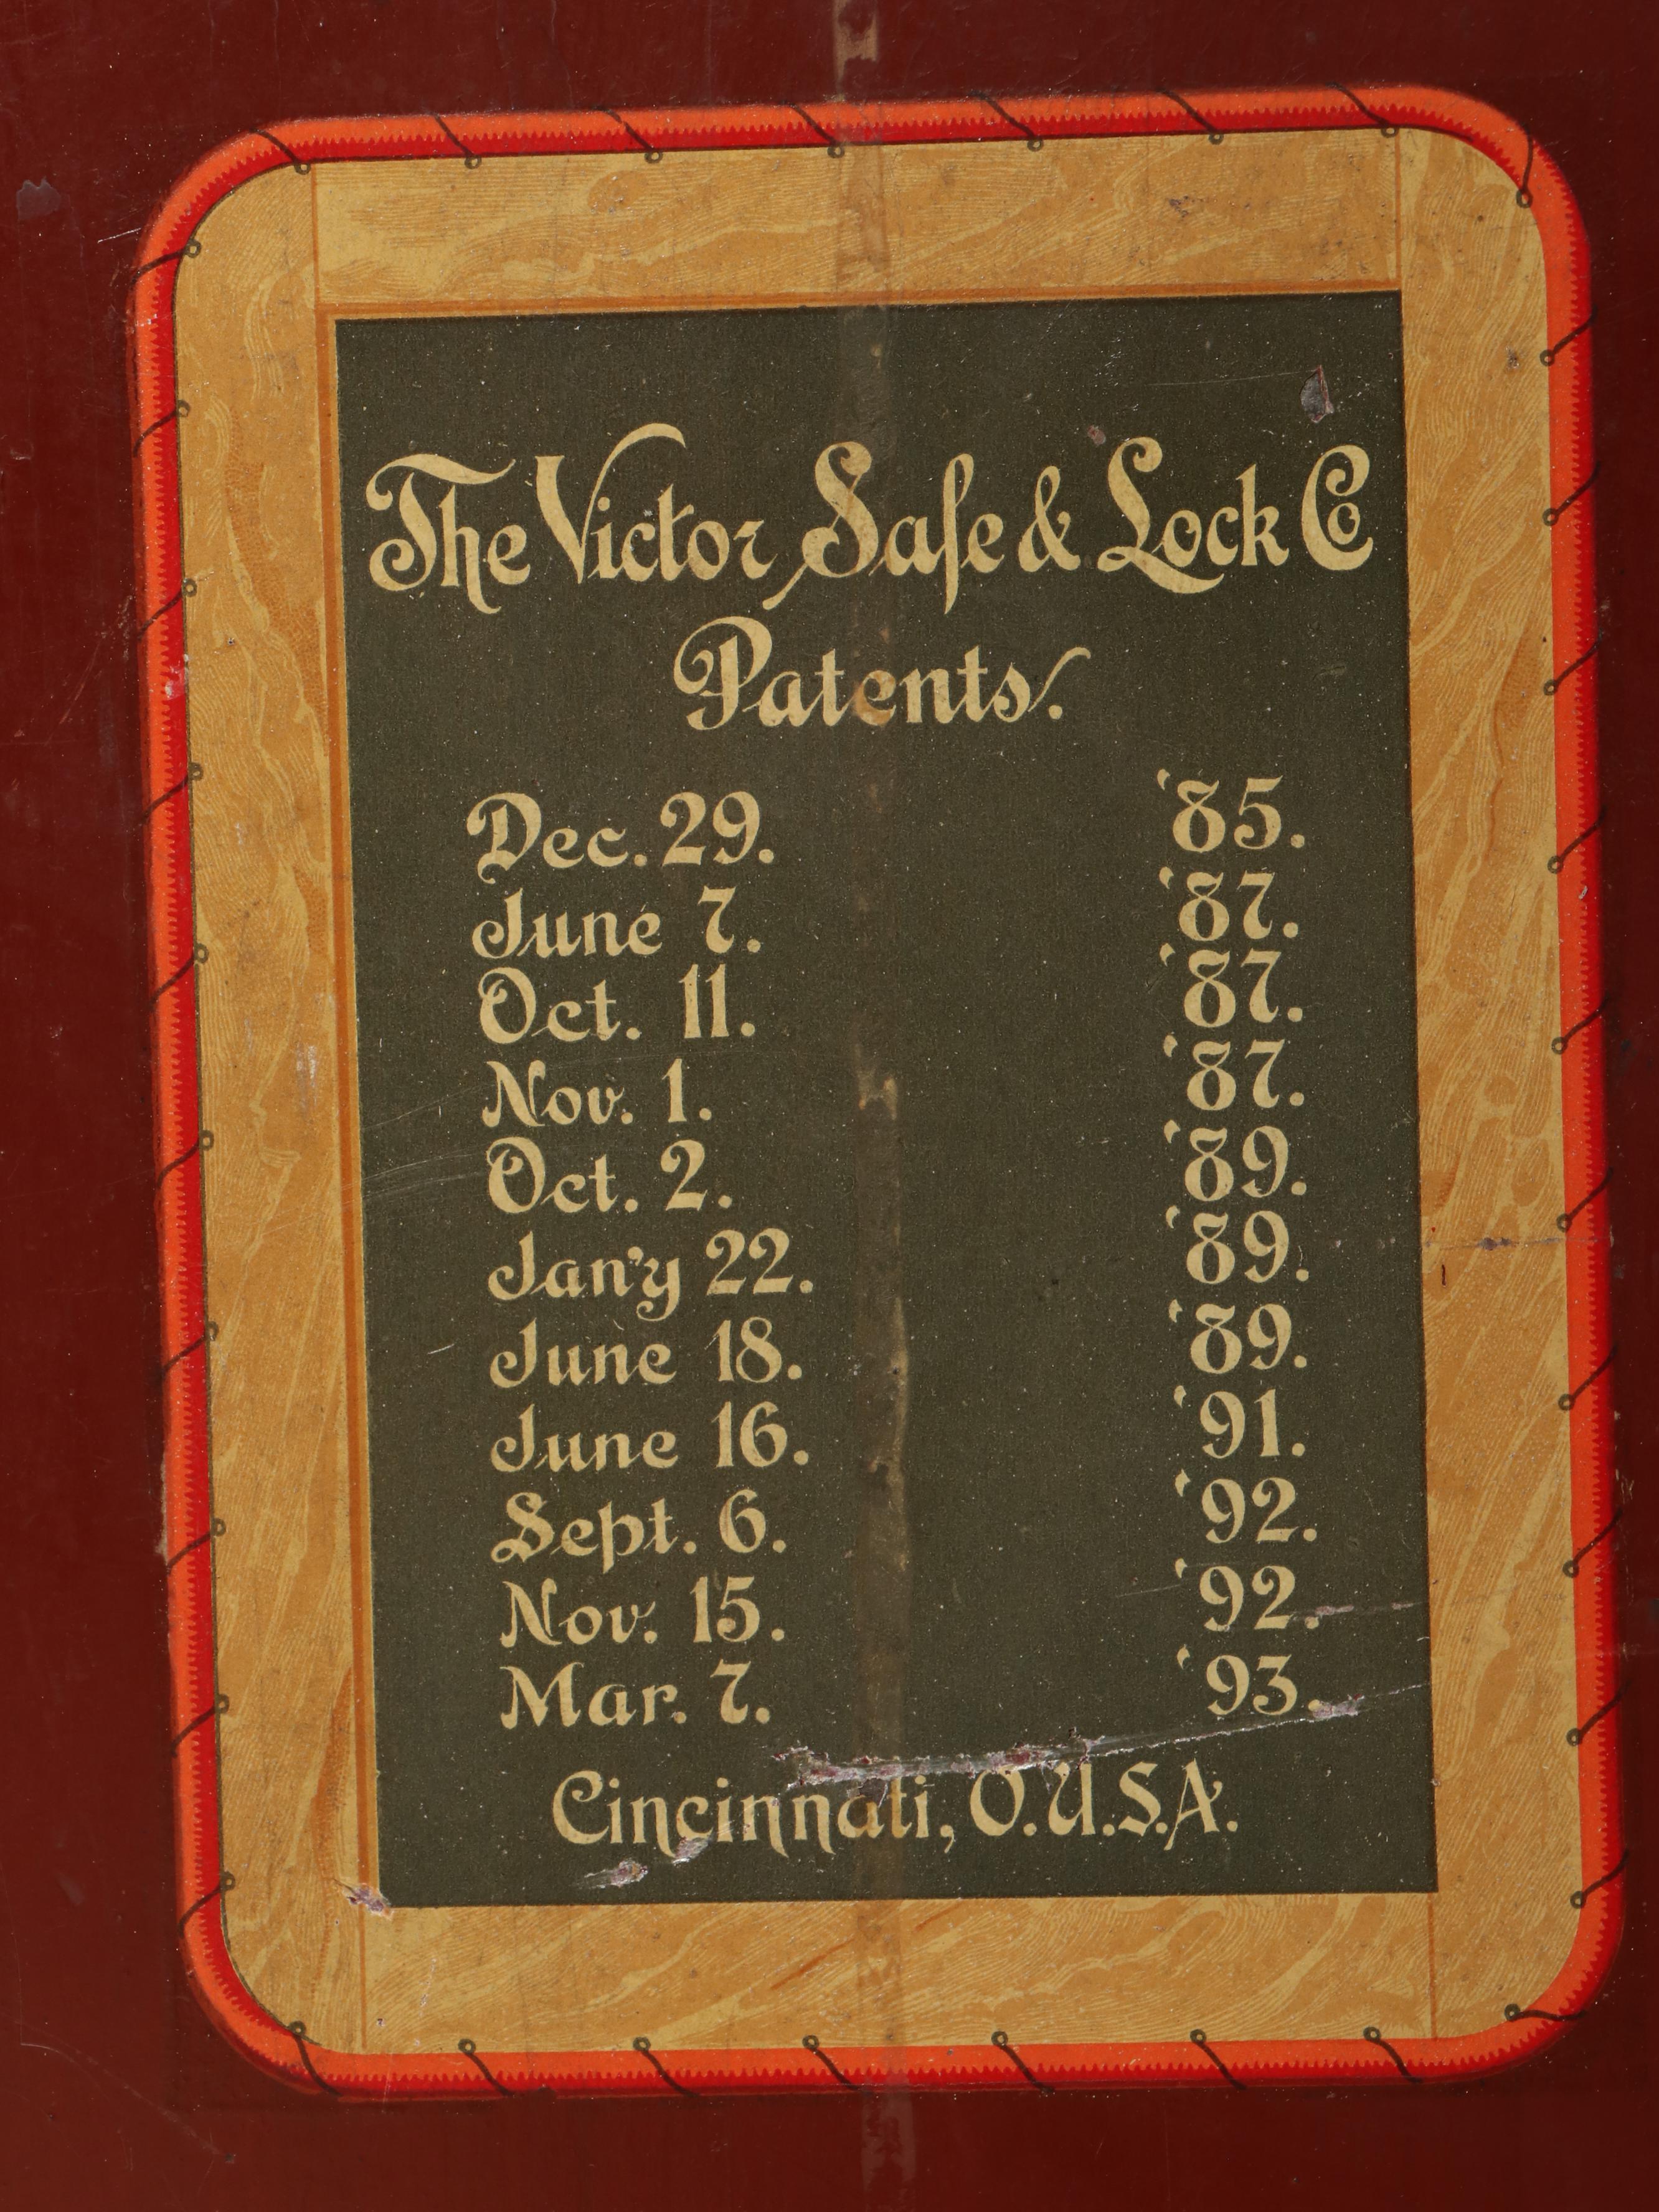 The Victor Safe & Lock Co
Patents.
Dec. 29. '85.
June 7. '87.
Oct. 11. '87.
Nov. 1. '87.
Oct. 2. '89.
Jan'y 22. '89.
June 18. '89.
June 16. '91.
Sept. 6. '92.
Nov. 15. '92.
Mar. 7. '93.
Cincinnati, O. U.S.A.